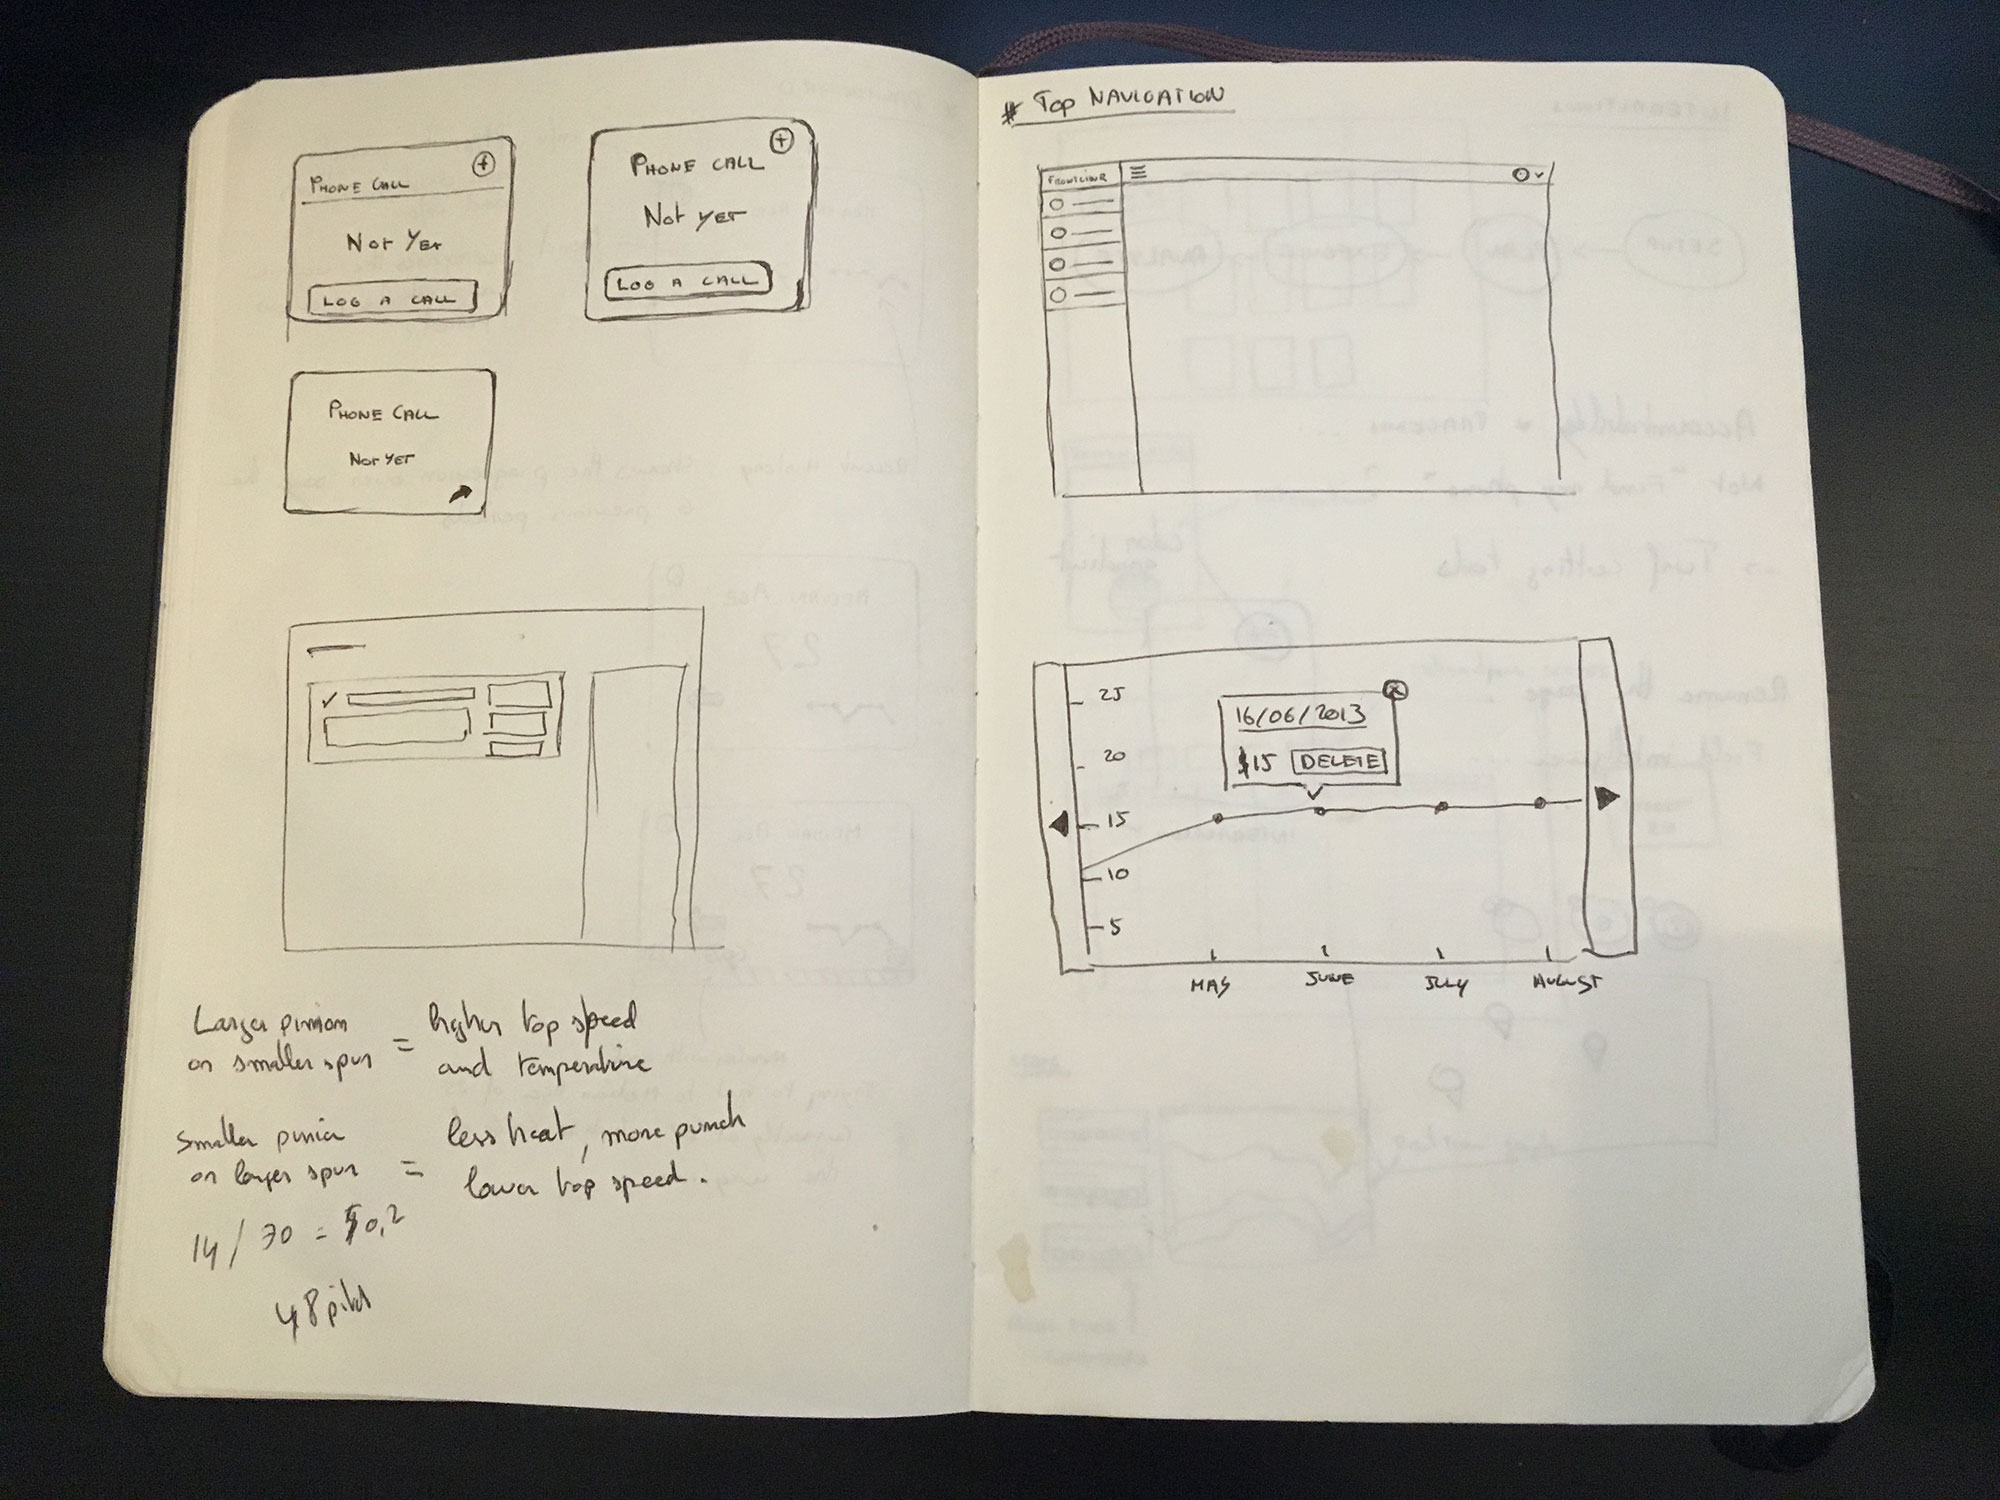 PHONE CALL
NOT YET
LOG A CALL
PHONE CALL
NOT YET
LOG A CALL
PHONE CALL
NOT YET
Larger pinion = higher top speed
or smaller spur and temperature
Smaller pinion = less heat, more punch
or larger spur lower top speed.
14/70 = 0,2
48 pitch
# TOP NAVIGATION
25
20
15
10
5
16/06/2013
$15 DELETE
MAY JUNE JULY AUGUST